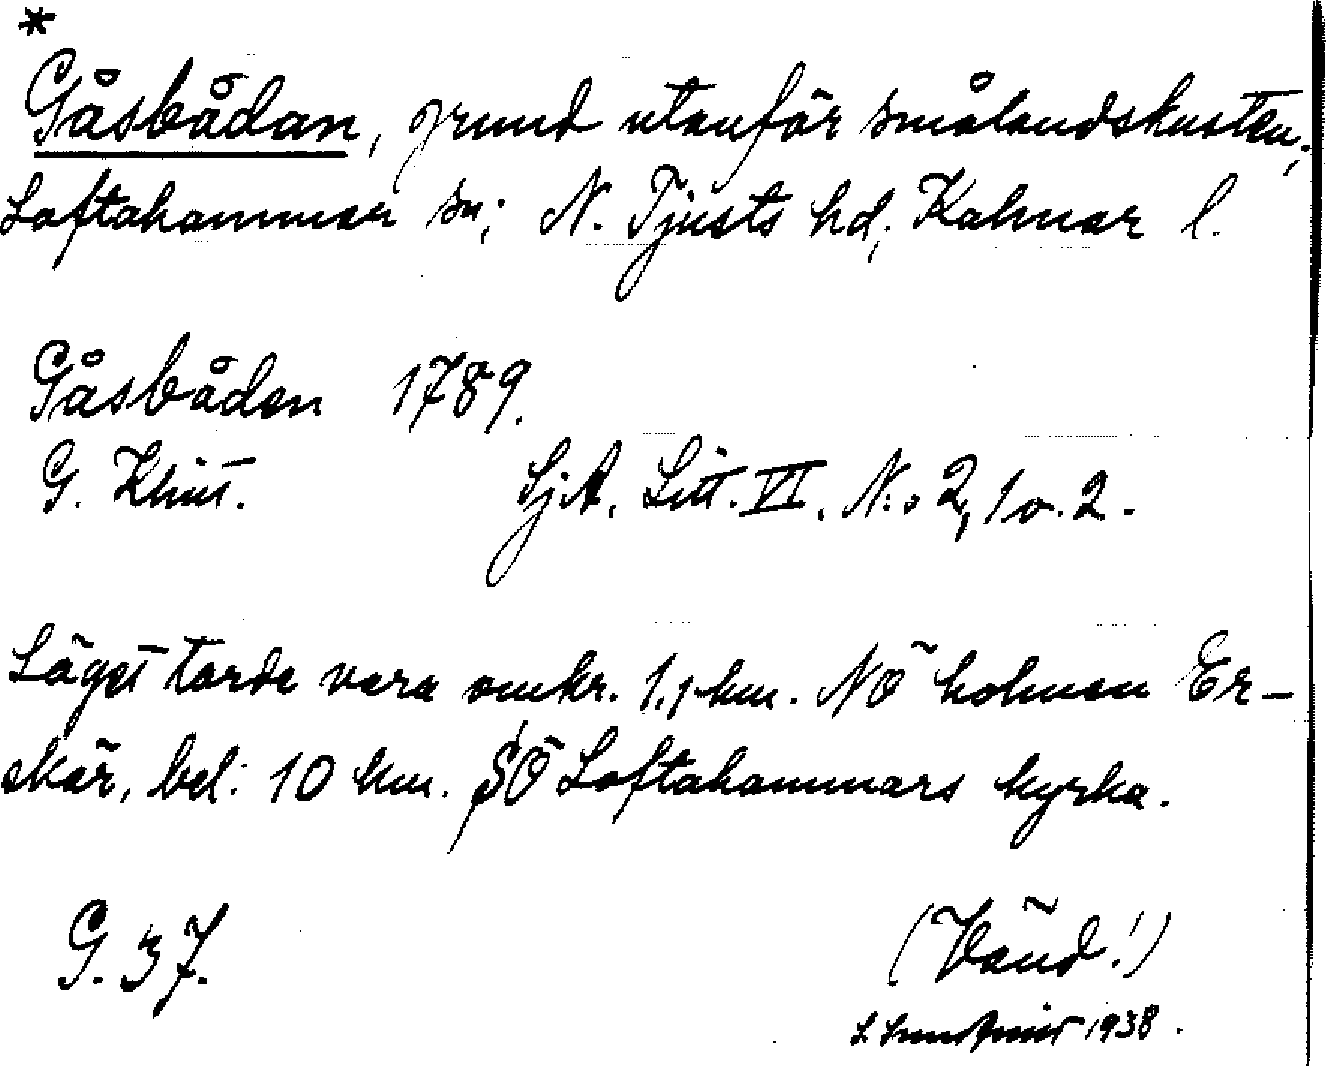 *
Gåsbådan, grund utanför smålandskusten,
Loftahammar sn; N. Tjusts hd; Kalmar l.
Gåsbåden 1789.
G. Klint. Sj.A. Litt. VI. N:o 2, 1 o. 2.
Läget torde vara omkr. 1.1 km. NÖ holmen Er-
skär, bel: 10 km. SÖ Loftahammars kyrka.
G. 37.
(Vänd!)
1938.